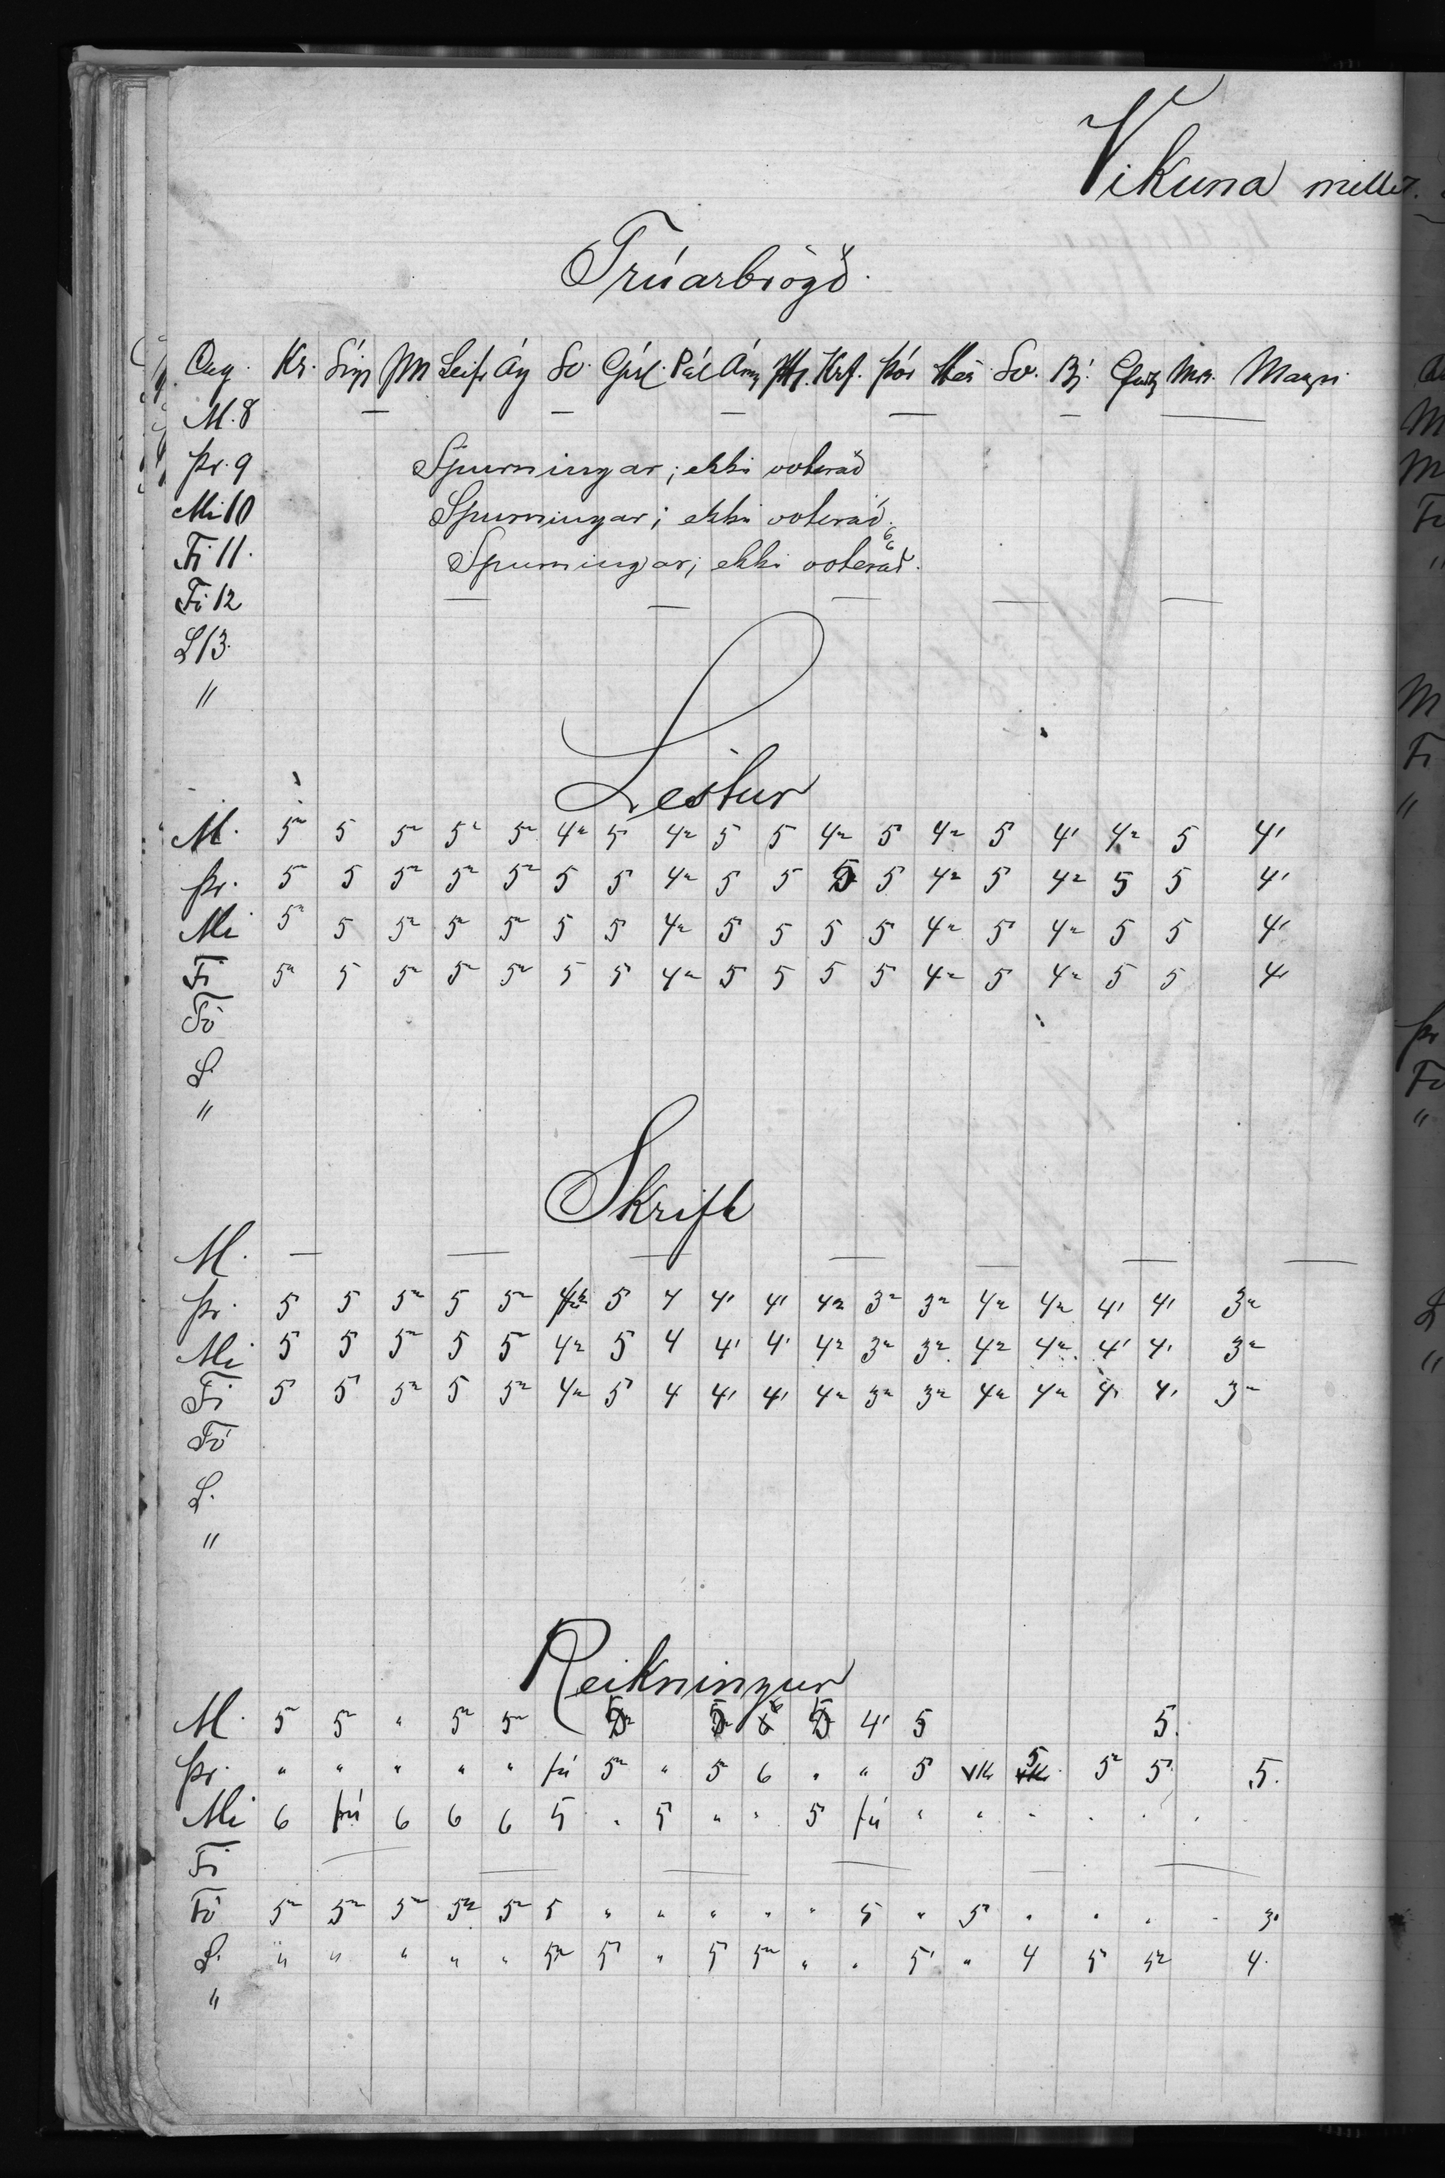 Vikuna millir
Trúarbrögð.
Dag. Kr. Leifr Sv. Páll Þór Sv. Bj. Mrs. Magn.
M. 8 — — — — — —
Þr. 9 Spurningar; ekki voterað
Mi 10 Spurningar; ekki voterað.
Fi 11. Spurningar; ekki voterað.
Fö 12 — — — — —
L 13.
"
Lestur
M. 5" 5 5" 5" 5" 4" 5 4" 5 5 4" 5 4" 5 4' 4" 5 4'
Þr. 5 5 5" 5" 5" 5 5 4" 5 5 5 5 4" 5 4" 5 5 4'
Mi 5" 5 5" 5" 5" 5 5 4" 5 5 5 5 4" 5 4" 5 5 4'
Fi 5" 5 5" 5" 5" 5 5 4" 5 5 5 5 4" 5 4" 5 5 4'
Fö
L
"
Skrift
M. — — — — — — —
Þr. 5 5 5" 5 5" 5 4 4' 4' 4" 3" 3" 4" 4" 4' 4' 3"
Mi 5 5 5" 5 5" 4" 5 4 4' 4' 4" 3" 3" 4" 4" 4' 4' 3"
Fi 5 5 5" 5 5" 4" 5 4 4' 4' 4" 3" 3" 4" 4" 4' 4' 3"
Fö
L.
"
Reikningur
M. 5 5" " 5" 5" 5 5 6 5 4' 5 5.
Þr. " " " " " fú 5" " 5 6 " " 5 VK 5 5" 5 5.
Mi 6 fú 6 6 6 5 " 5 " " 5 fú " " " " " "
Fi — — — — — —
Fö 5" 5" 5" 5" 5" 5 " " " " " 5 " 5 " " " " 3.
L. " " " " " 5" 5 " 5 5" " " 5' " 4 5 5" 4.
"